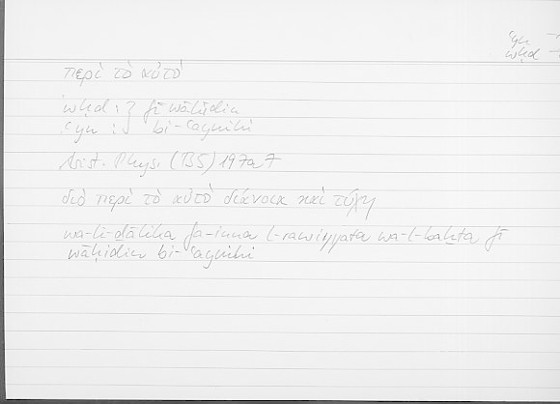 ʿyn
wḥd
περὶ τὸ αὐτό
wḥd : } fī wāḥidin
ʿyn : } bi-ʿaynihi
Arist. Phys. (B5) 197a7
διὸ περὶ τὸ αὐτὸ διάνοια καὶ τύχη
wa-li-ḏālika fa-inna l-rawiyyata wa-l-baḫta fī
wāḥidin bi-ʿaynihi